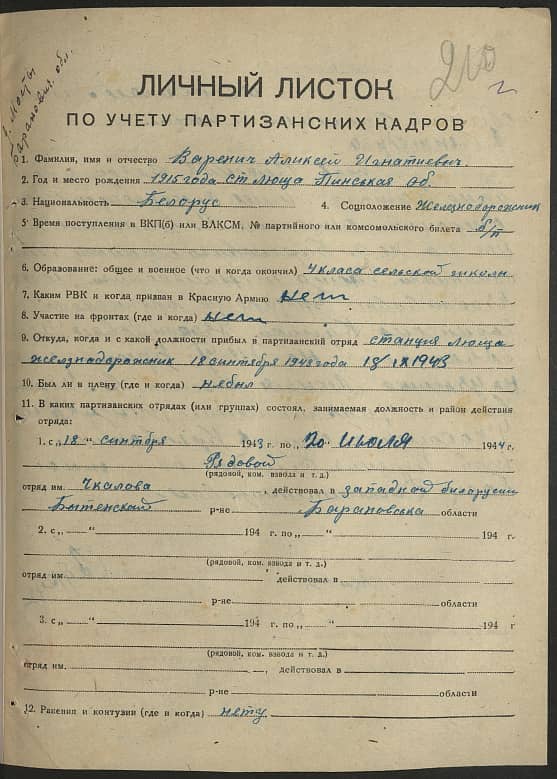 г. Мосты
Баранович. обл.
210
ЛИЧНЫЙ ЛИСТОК
ПО УЧЕТУ ПАРТИЗАНСКИХ КАДРОВ
1. Фамилия, имя и отчество Варенич Аликсей Игнатиевич.
2. Год и место рождения 1915 года ст Люща Пинськая об.
3. Национальность Белорус 4. Соцположение Железнодорожник
5. Время поступления в ВКП(б) или ВЛКСМ, № партийного или комсомольского билета б/п
6. Образование: общее и военное (что и когда окончил) 4 класа сельской школы
7. Каким РВК и когда призван в Красную Армию нет
8. Участие на фронтах (где и когда) нет
9. Откуда, когда и с какой должности прибыл в партизанский отряд станция Люща
железнадорожник 18 синтября 1943 года 18/IX 1943
10. Был ли в плену (где и когда) нябыл
11. В каких партизанских отрядах (или группах) состоял, занимаемая должность и район действия
отряда:
1. с „18“ синтября 1943 г. по „20“ Июля 1944 г.
Рядовой
(рядовой, ком. взвода и т. д.)
отряд им. Чкалова, действовал в западной биларусии
Бытенский р-не Барановська области
2. с „ “ 194 г. по „ “ 194 г.
(рядовой, ком. взвода и т. д.)
отряд им. действовал в
р-не области
3. с „ “ 194 г. по „ “ 194 г
(рядовой, ком. взвода и т. д.)
отряд им. , действовал в
р-не области
12. Ранения и контузии (где и когда) нету